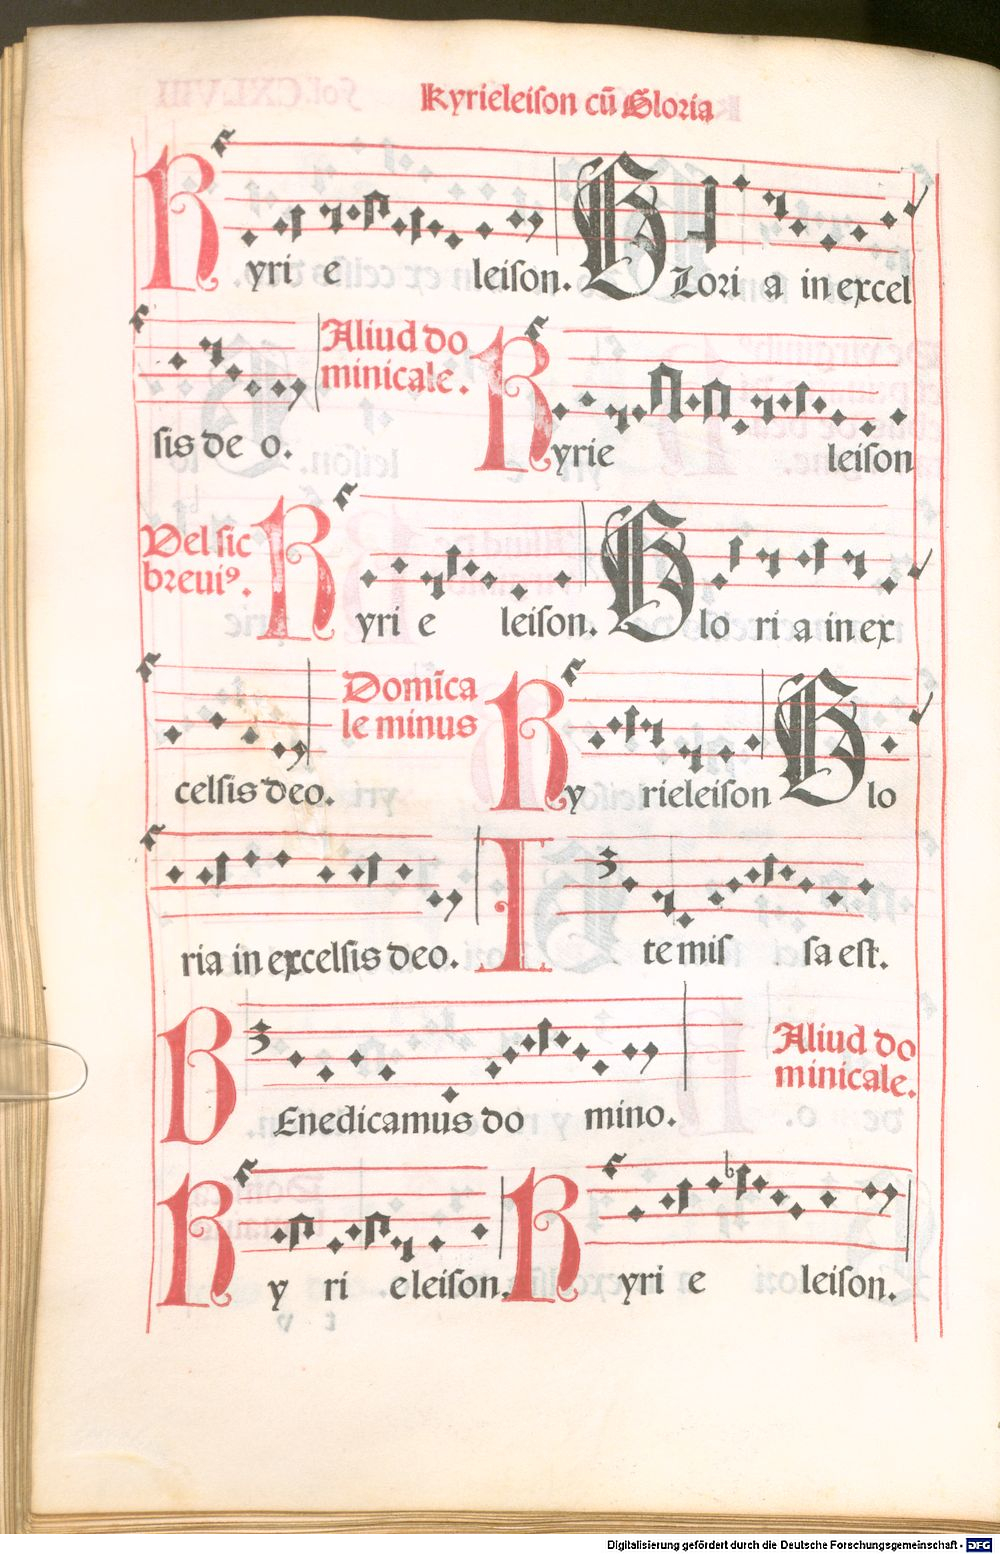 Kyrieleiſon cū Gloria
Kyri e leiſon. GLori a in excel
ſis de o. Aliud do
minicale. Kyrie leiſon
Vel ſic
breuiꝯ. Kyri e leiſon. Glo ri a in ex
celſis deo. Domīca
le minus Ky rieleiſon Glo
ria in excelſis deo. Ite miſ ſa eſt.
BEnedicamus do mino. Aliud do
minicale.
Ky ri eleiſon. Kyri e leiſon.
Digitalisierung gefördert durch die Deutsche Forschungsgemeinschaft - DFG